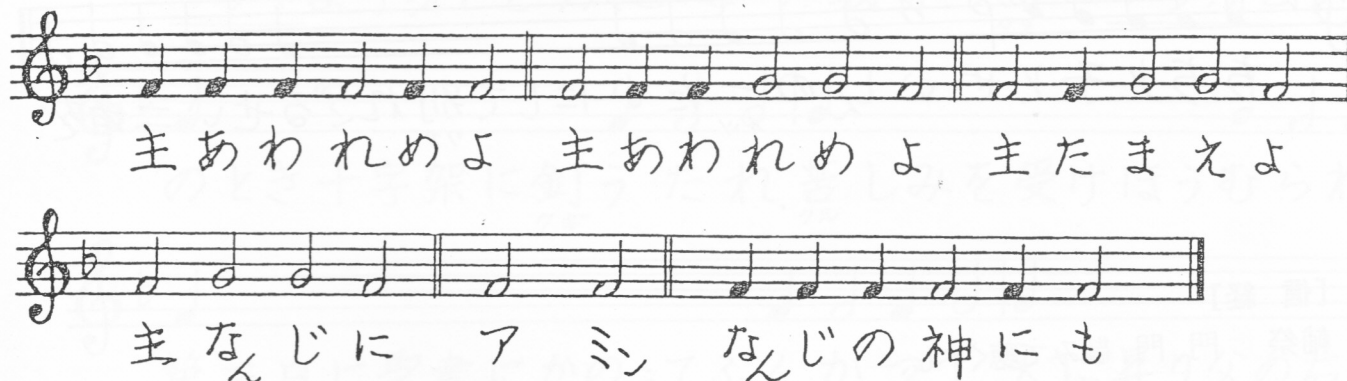 主あわれめよ 主あわれめよ 主たまえよ
主なんじに アミン なんじの神にも